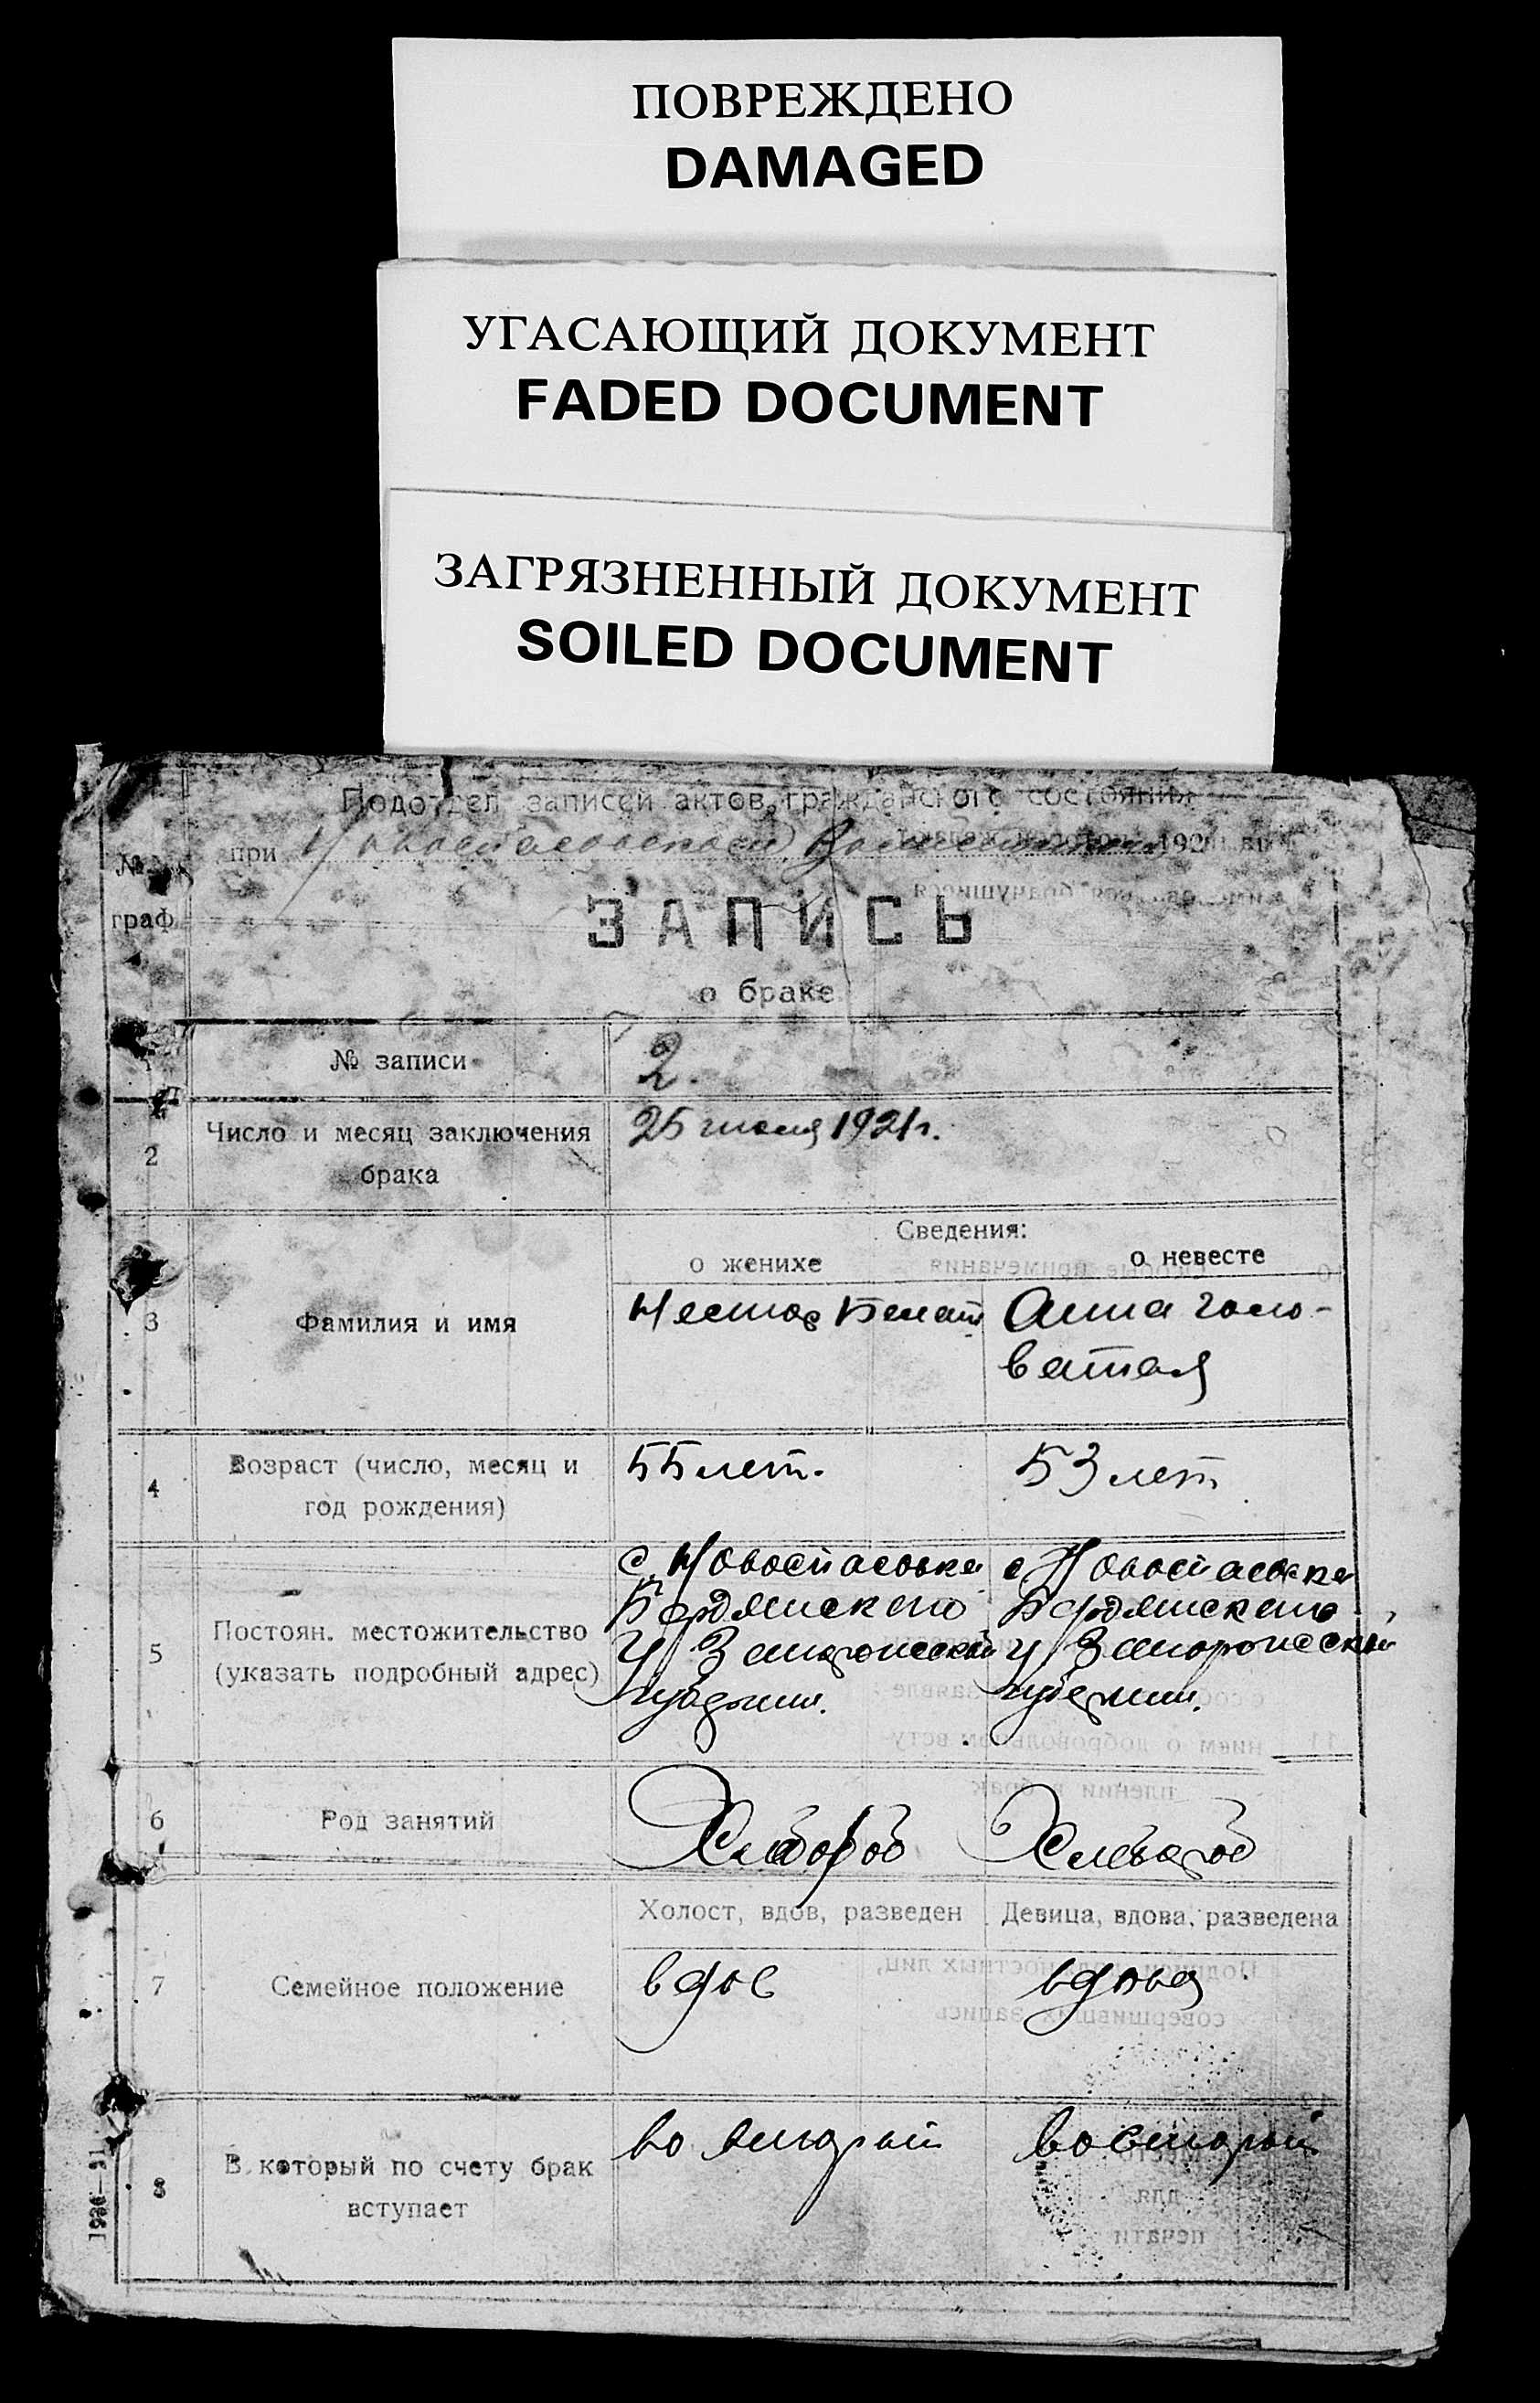 ПОВРЕЖДЕНО
DAMAGED
УГАСАЮЩИЙ ДОКУМЕНТ
FADED DOCUMENT
ЗАГРЯЗНЕННЫЙ ДОКУМЕНТ
SOILED DOCUMENT
Подотдел записей актов гражданского состояния
при 192
№№
граф.
ЗАПИСЬ
о браке
№ записи 2.
2 Число и месяц заключения брака 25 1921 г.
Сведения:
о женихе о невесте
3 Фамилия и имя Нестор Анна Голо-
ватая
4 Возраст (число, месяц и 55 лет. 53 лет
год рождения)
с. Новоспасовка с. Новоспасовка
Бердянского Бердянского
5 Постоян. местожительство у. Запорожской у. Запорожской
(указать подробный адрес) губернии. губернии.
6 Род занятий Хлебороб Хлебороб
Холост, вдов, разведен Девица, вдова, разведена
7 Семейное положение вдов вдова
8 В который по счету брак во второй во второй
вступает